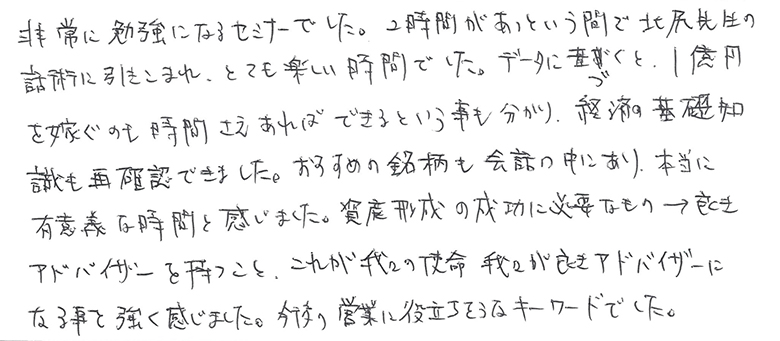 非常に勉強になるセミナーでした。2時間があっという間で北尻先生の
話術に引きこまれ、とても楽しい時間でした。データに基づくと、1億円
を嫁ぐのも時間さえあればできるという事も分かり、経済の基礎知
識も再確認できました。おすすめの銘柄も会話の中にあり、本当に
有意義な時間と感じました。資産形成の成功に必要なもの→良き
アドバイザーを持つこと、これが我々の使命 我々が良きアドバイザーに
なる事と強く感じました。今後の営業に役立ちそうなキーワードでした。